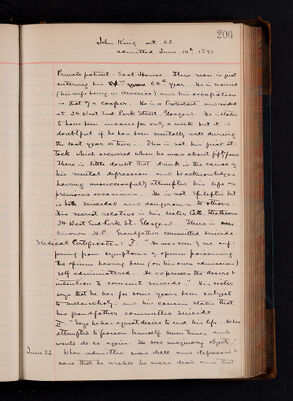 206
John King æt. 63.
admitted June 19th 1899
Private patient - East House. This man is just
entering his 64th year. He is married
(his wife being in America) and his occupation
is that of a cooper. He is a Protestant and resided
at 34 West End Park Street, Glasgow. He is stated
to have been insane for only a week but it is
doubtful if he has been mentally well during
the last year or two. This is not his first at-
tack which occurred when he was about fifty
There is little doubt that drink is the cause of
his mental depression and he acknowledges
having unsuccessfully attempted his life on
previous occasions. He is not epileptic but
is both suicidal and dangerous to others.
His nearest relative is his sister
34 West End Park St. Glasgow. There is
known H.P. Grandfather committed suicide
Medical Certificates: I. "He was seen by me suf-
fering from symptoms of opium poisoning
the opium having been (on his own admission)
self administered. He expresses the desire &
intention to commit suicide." His sister
says that he has for some years been subject
to melancholy, and his cousin states that
his grandfather committed suicide.
II "Says he has a great desire to end his life. He has
attempted to poison himself sometimes, and
would do so again. He sees imaginary objects."
June 22 When admitted was dull and depressed
said that he wished he were dead and that